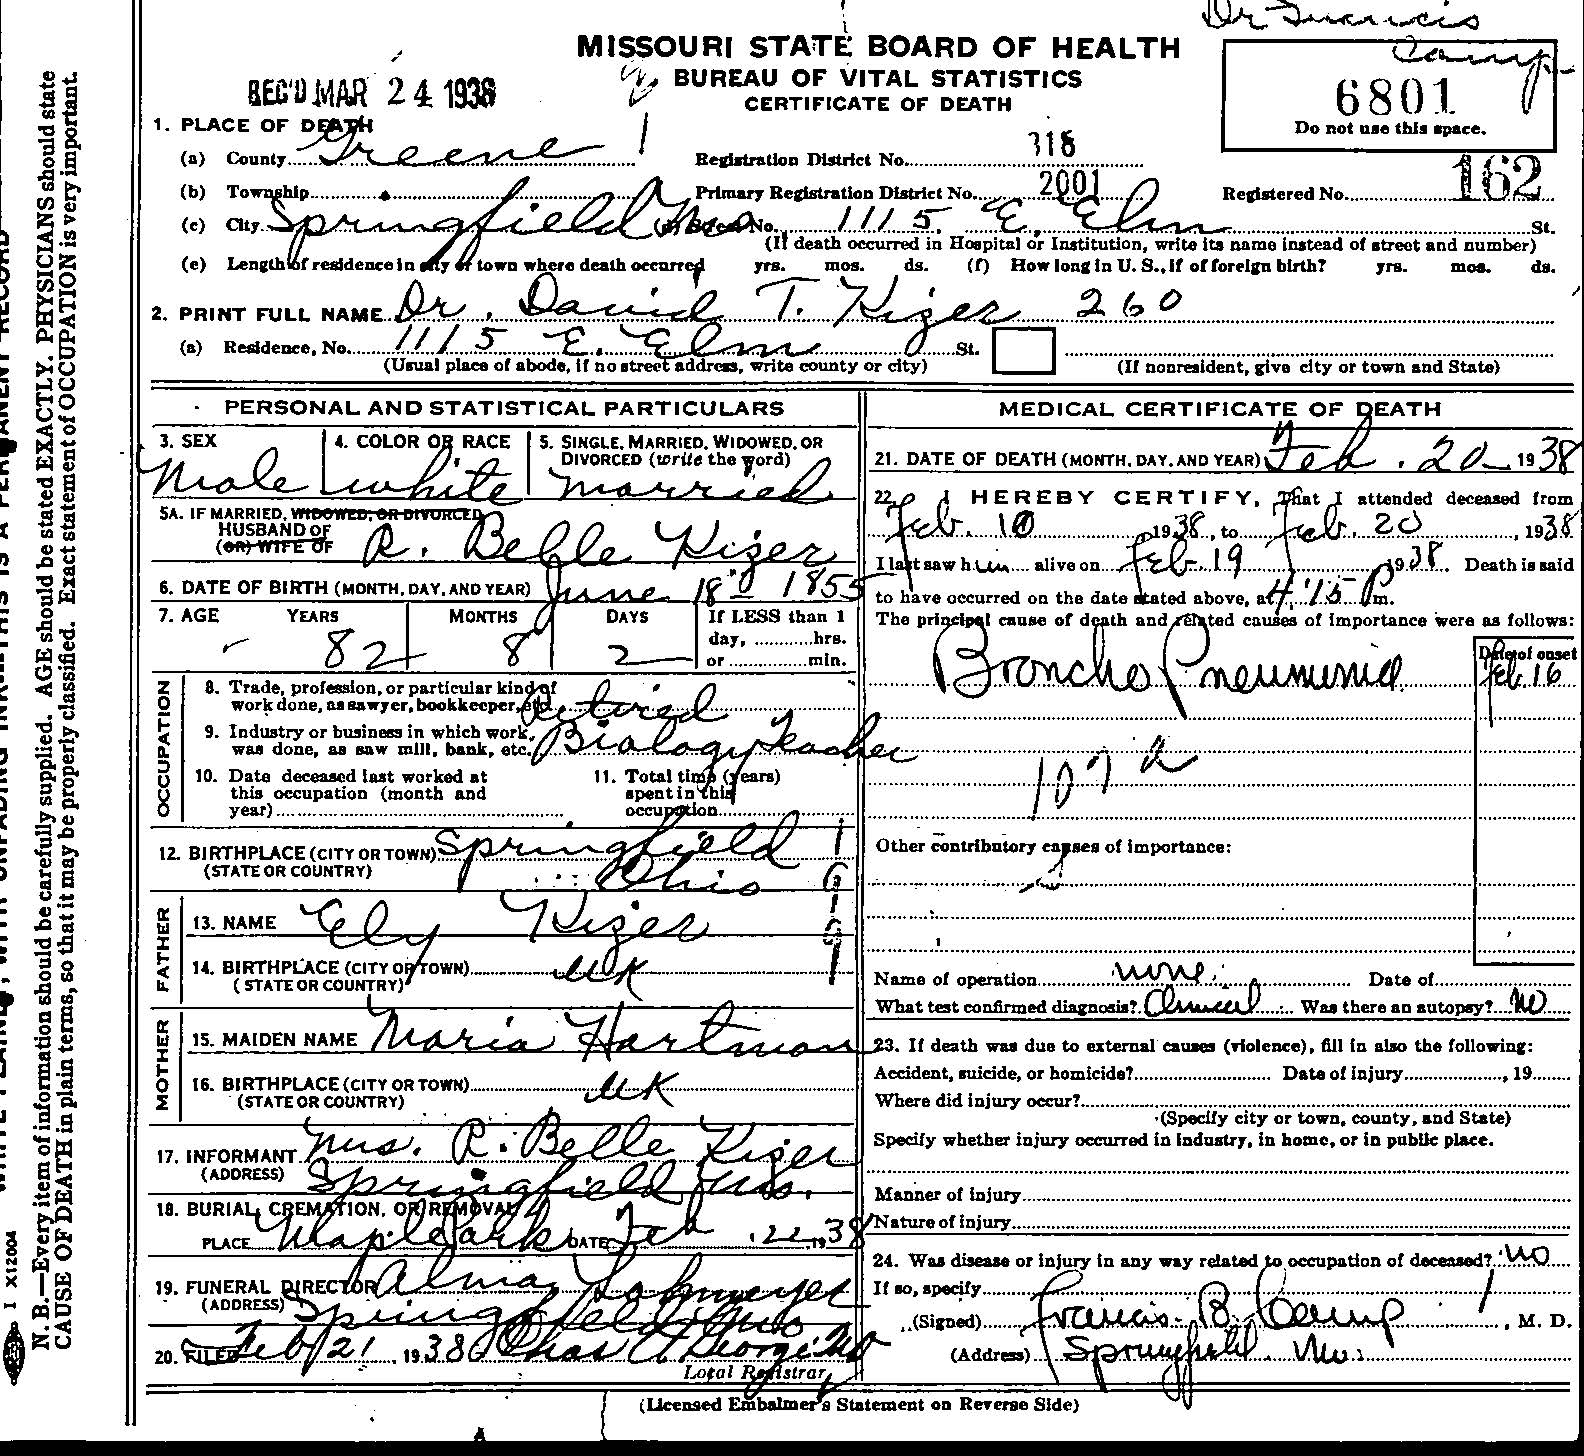 Dr Francis
Camp
MISSOURI STATE BOARD OF HEALTH
BUREAU OF VITAL STATISTICS
CERTIFICATE OF DEATH
REC'D MAR 24 1938
6801
Do not use this space.
1. PLACE OF DEATH
(a) County Greene Registration District No. 318
(b) Township Primary Registration District No. 2001 Registered No. 162
(c) City Springfield Mo No. 1115 E. Elm St.
(If death occurred in Hospital or Institution, write its name instead of street and number)
(e) Length of residence in city or town where death occurred yrs. mos. ds. (f) How long in U. S., if of foreign birth? yrs. mos. ds.
2. PRINT FULL NAME Dr. David T. Kizer 260
(a) Residence, No. 1115 E. Elm St.
(Usual place of abode, if no street address, write county or city) (If nonresident, give city or town and State)
PERSONAL AND STATISTICAL PARTICULARS
3. SEX Male
4. COLOR OR RACE white
5. SINGLE, MARRIED, WIDOWED, OR
DIVORCED (write the word) married
5A. IF MARRIED, WIDOWED, OR DIVORCED
HUSBAND OF
(OR) WIFE OF R. Belle Kizer
6. DATE OF BIRTH (MONTH, DAY, AND YEAR) June 18th 1855
7. AGE YEARS MONTHS DAYS If LESS than 1
day, hrs.
82 8 2 or min.
OCCUPATION
8. Trade, profession, or particular kind of
work done, as sawyer, bookkeeper, etc. retired
9. Industry or business in which work
was done, as saw mill, bank, etc. Biology Teacher
10. Date deceased last worked at
this occupation (month and
year)
11. Total time (years)
spent in this
occupation
12. BIRTHPLACE (CITY OR TOWN) Springfield
(STATE OR COUNTRY) Ohio
FATHER
13. NAME Ely Kizer
14. BIRTHPLACE (CITY OR TOWN) UK
(STATE OR COUNTRY)
MOTHER
15. MAIDEN NAME Maria Hartman
16. BIRTHPLACE (CITY OR TOWN) UK
(STATE OR COUNTRY)
17. INFORMANT Mrs. R. Belle Kizer
(ADDRESS) Springfield Mo.
18. BURIAL, CREMATION, OR REMOVAL
PLACE Maple Park DATE Feb 22, 1938
19. FUNERAL DIRECTOR Alma Lohmeyer
(ADDRESS) Springfield Mo
20. FILED Feb 21, 1938 Chas A George MD
Local Registrar
MEDICAL CERTIFICATE OF DEATH
21. DATE OF DEATH (MONTH, DAY, AND YEAR) Feb. 20 1938
22. I HEREBY CERTIFY, That I attended deceased from
Feb. 10 1938, to Feb. 20, 1938
I last saw him alive on Feb. 19 1938 Death is said
to have occurred on the date stated above, at 4:15 P m.
The principal cause of death and related causes of importance were as follows:
Date of onset
Broncho Pneumonia Feb 16
107 a
Other contributory causes of importance:
Name of operation none. Date of
What test confirmed diagnosis? Clinical Was there an autopsy? No
23. If death was due to external causes (violence), fill in also the following:
Accident, suicide, or homicide? Date of injury , 19
Where did injury occur?
(Specify city or town, county, and State)
Specify whether injury occurred in industry, in home, or in public place.
Manner of injury
Nature of injury
24. Was disease or injury in any way related to occupation of deceased? No
If so, specify
(Signed) Francis B. Camp, M. D.
(Address) Springfield. Mo.
(Licensed Embalmer's Statement on Reverse Side)
N. B.—Every item of information should be carefully supplied. AGE should be stated EXACTLY. PHYSICIANS should state
CAUSE OF DEATH in plain terms, so that it may be properly classified. Exact statement of OCCUPATION is very important.
I X12004